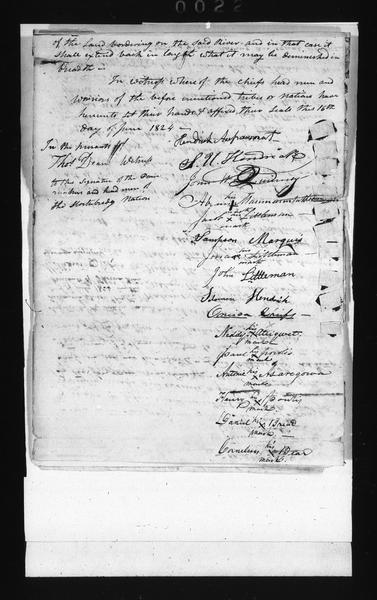 0022
of the Land bordering on the said River and in that case it
shall extend back in length what it may be diminished in
breadth is
In witness whereof the chiefs head men and
warriors of the before mentioned tribes or nations have
hereunto set their hands & affixed their seals this 16th
day of June 1824 —
In the presence of
Thos Dean Witness
to the signature of the
and head men of
the Stockbridge Nation
Hendrick Aupaumut —
S. U. Hendrick
John W. Quinney
his
Jacob x Littleman
mark
Sampson Marquis
his
Littleman
mark
John Littleman
Hendrick
Oneida Chiefs —
his
Neddy x
mark
his
Paul x
mark
Antoine his x
mark
Henry his x
mark
Daniel his x Bread
mark —
Cornelius his x Bear
mark